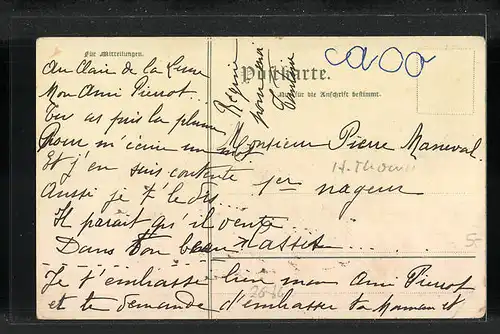 Für Mitteilungen.
Postkarte.
Nur für die Anschrift bestimmt.
Au Clair de la Lune
Mon Ami Pierrot
Tu as pris la plume
Pour m'écrire un mot
Et j'en suis contente
Aussi je t'le dis...
Il parait qu'il vente....
Dans ton beau
Je t'embrasse bien mon Ami Pierrot
et te demande d'embrasser ta Maman et
Régine
pour moi
Monsieur Pierre Maneval
1er nageur